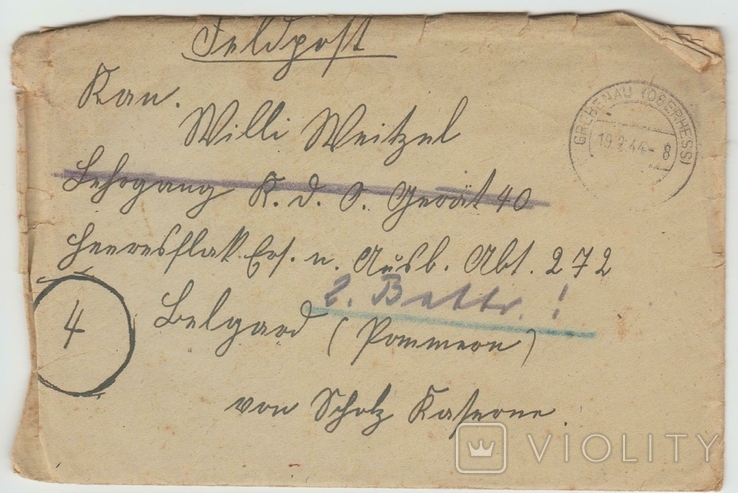 Feldpost
Kan.
Willi Weitzel
GREBENAU (OBERHESS)
19.2.44-8
Lehrgang K. d. O. Gerät 40
Heeresflak. Ers. u. Ausb. Abt. 272
2. Battr. !
4
Belgard (Pommern)
von Scholz Kaserne.
VIOLITY